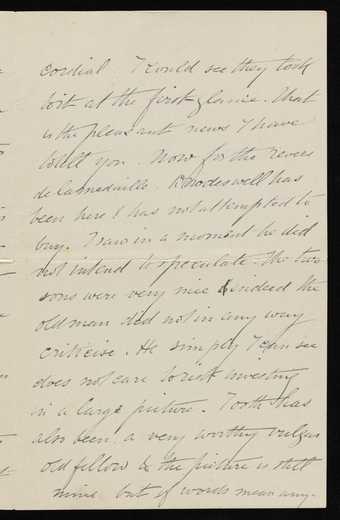 cordial. I could see they took
to it at the first glance. That
is the pleasant news I have
to tell you. Now for the Revers
de la medaille. Rhodeswell has
been here & has not attempted to
buy. I saw in a moment he did
not intend to speculate. The two
sons were very nice & indeed the
old man did not in any way
criticise. He simply I can see
does not care to risk investing
in a large picture. Tooth has
also been, a very worthy vulgar
old fellow & the picture is still
mine, but if words mean any-